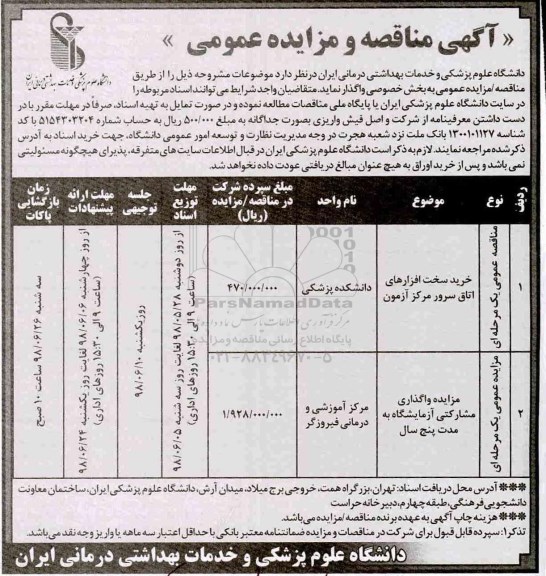 « آگهی مناقصه و مزایده عمومی »
دانشگاه علوم پزشکی و خدمات بهداشتی درمانی ایران
دانشگاه علوم پزشکی و خدمات بهداشتی درمانی ایران در نظر دارد موضوعات مشروحه ذیل را از طریق
مناقصه/مزایده عمومی به بخش خصوصی واگذار نماید. متقاضیان واجد شرایط می توانند اسناد مربوطه را
در سایت دانشگاه علوم پزشکی ایران یا پایگاه ملی مناقصات مطالعه نموده و در صورت تمایل به تهیه اسناد، صرفاً در مهلت مقرر با در
دست داشتن معرفینامه از شرکت و اصل فیش واریزی بصورت جداگانه به مبلغ ۵۰۰/۰۰۰ ریال به حساب شماره ۵۱۵۴۳۰۳۲۰۴ با کد
شناسه ۱۳۰۰۱۰۱۱۲۷ بانک ملت نزد شعبه هجرت در وجه مدیریت نظارت و توسعه امور عمومی دانشگاه، جهت خرید اسناد به آدرس
ذکر شده مراجعه نمایند. لازم به ذکر است دانشگاه علوم پزشکی ایران در قبال اطلاعات سایت های متفرقه، پذیرای هیچگونه مسئولیتی
نمی باشد و پس از خرید اوراق به هیچ عنوان مبالغ دریافتی عودت داده نخواهد شد.
ردیف
نوع
موضوع
نام واحد
مبلغ سپرده شرکت در مناقصه/مزایده (ریال)
مهلت توزیع اسناد
جلسه توجیهی
مهلت ارائه پیشنهادات
زمان بازگشایی پاکات
۱
مناقصه عمومی یک مرحله ای
خرید سخت افزارهای
اتاق سرور مرکز آزمون
دانشکده پزشکی
۴۷۰/۰۰۰/۰۰۰
از روز دوشنبه ۹۸/۰۵/۲۸ لغایت روز سه شنبه ۹۸/۰۶/۰۵
(ساعت ۹ الی ۱۵:۳۰ روزهای اداری)
روز یکشنبه ۹۸/۰۶/۱۰
از روز چهارشنبه ۹۸/۰۶/۰۶ لغایت روز یکشنبه ۹۸/۰۶/۲۴
(ساعت ۹ الی ۱۵:۳۰ روزهای اداری)
سه شنبه ۹۸/۰۶/۲۶ ساعت ۱۰ صبح
۲
مزایده عمومی یک مرحله ای
مزایده واگذاری
مشارکتی آزمایشگاه به
مدت پنج سال
مرکز آموزشی و
درمانی فیروزگر
۱/۹۲۸/۰۰۰/۰۰۰
ParsNamadData
پایگاه اطلاع رسانی مناقصه و مزایده
۰۲۱-۸۸۳۴۹۶۷۰-۵
※※※ آدرس محل دریافت اسناد: تهران، بزرگراه همت، خروجی برج میلاد، میدان آرش، دانشگاه علوم پزشکی ایران، ساختمان معاونت
دانشجویی فرهنگی، طبقه چهارم، دبیرخانه حراست
※※※ هزینه چاپ آگهی به عهده برنده مناقصه/مزایده می باشد.
تذکر۱: سپرده قابل قبول برای شرکت در مناقصات و مزایده ضمانتنامه معتبر بانکی با حداقل اعتبار سه ماهه یا واریز وجه نقد می باشد.
دانشگاه علوم پزشکی و خدمات بهداشتی درمانی ایران